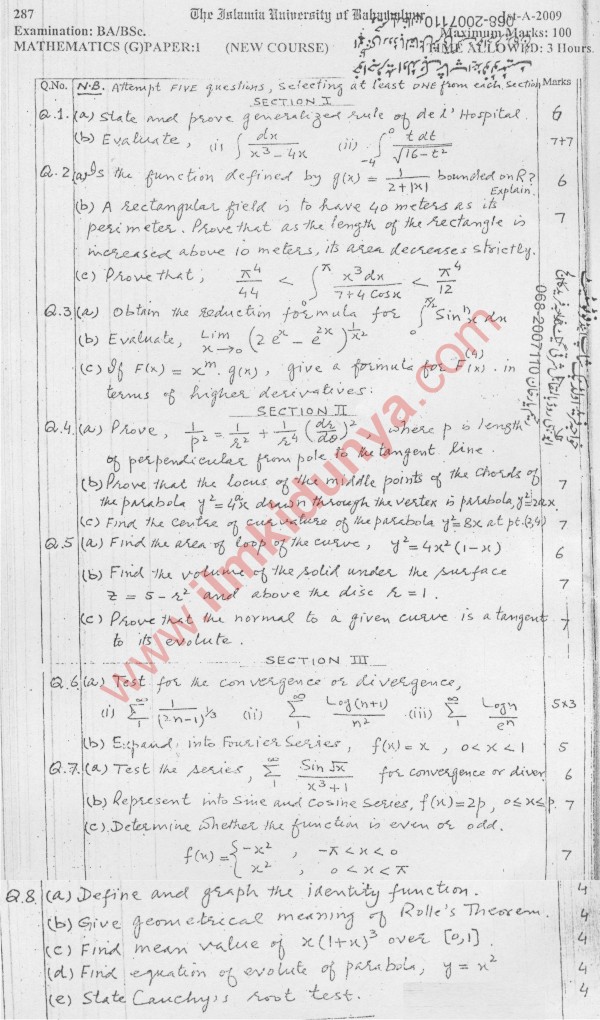 287 The Islamia University of Bahawalpur -A-2009
Examination: BA/BSc. Maximum Marks: 100
MATHEMATICS (G)PAPER:1 (NEW COURSE) TIME ALLOWED: 3 Hours
068-2007110
Q.No. N.B. Attempt FIVE questions, selecting at least ONE from each section Marks
SECTION I
Q.1. (a) State and prove generalized rule of de l' Hospital. 6
(b) Evaluate, (i) ∫ dx / (x³ - 4x) (ii) ∫₋₄⁰ t dt / √(16 - t²) 7+7
Q.2 (a) Is the function defined by g(x) = 1 / (2 + |x|) bounded on R? Explain. 6
(b) A rectangular field is to have 40 meters as its 7
perimeter. Prove that as the length of the rectangle is
increased above 10 meters, its area decreases strictly.
(c) Prove that, π⁴/44 < ∫₀^π x³dx / (7 + 4 Cosx) < π⁴/12
Q.3 (a) Obtain the reduction formula for ∫₀^(π/2) Sinⁿx dx
(b) Evaluate, Lim x→0 (2eˣ - e²ˣ)^(1/x²)
(c) If F(x) = xᵐ g(x), give a formula for F⁽⁴⁾(x) in
terms of higher derivatives.
068-2007110
SECTION II
Q.4. (a) Prove, 1/p² = 1/r² + 1/r⁴ (dr/dθ)² where p is length
of perpendicular from pole to the tangent line.
(b) Prove that the locus of the middle points of the chords of 7
the parabola y² = 4ax drawn through the vertex is parabola, y² = 2ax.
(c) Find the centre of curvature of the parabola y² = 8x at pt. 7
Q.5 (a) Find the area of loop of the curve, y² = 4x²(1-x) 6
(b) Find the volume of the solid under the surface 7
z = 5 - r² and above the disc r = 1.
(c) Prove that the normal to a given curve is a tangent 7
to its evolute.
SECTION III
Q.6 (a) Test for the convergence or divergence,
(i) Σ₁^∞ 1 / (2n-1)^(1/3) (ii) Σ₁^∞ Log(n+1) / n² (iii) Σ₁^∞ Logn / eⁿ 5x3
(b) Expand into Fourier Series, f(x) = x, 0 < x < 1 5
Q.7. (a) Test the series, Σ₁^∞ Sin√x / (x³ + 1) for convergence or diver 6
(b) Represent into sine and cosine series, f(x) = 2p, 0 ≤ x ≤ p. 7
(c) Determine whether the function is even or odd.
f(x) = { -x², -π < x < 0 7
x², 0 < x < π
Q.8 (a) Define and graph the identity function. 4
(b) Give geometrecal meaning of Rolle's Theorem. 4
(c) Find mean value of x(1+x)³ over [0,1]. 4
(d) Find equation of evolute of parabola, y = x² 4
(e) State Cauchy's root test. 4
www.ilmkidunya.com